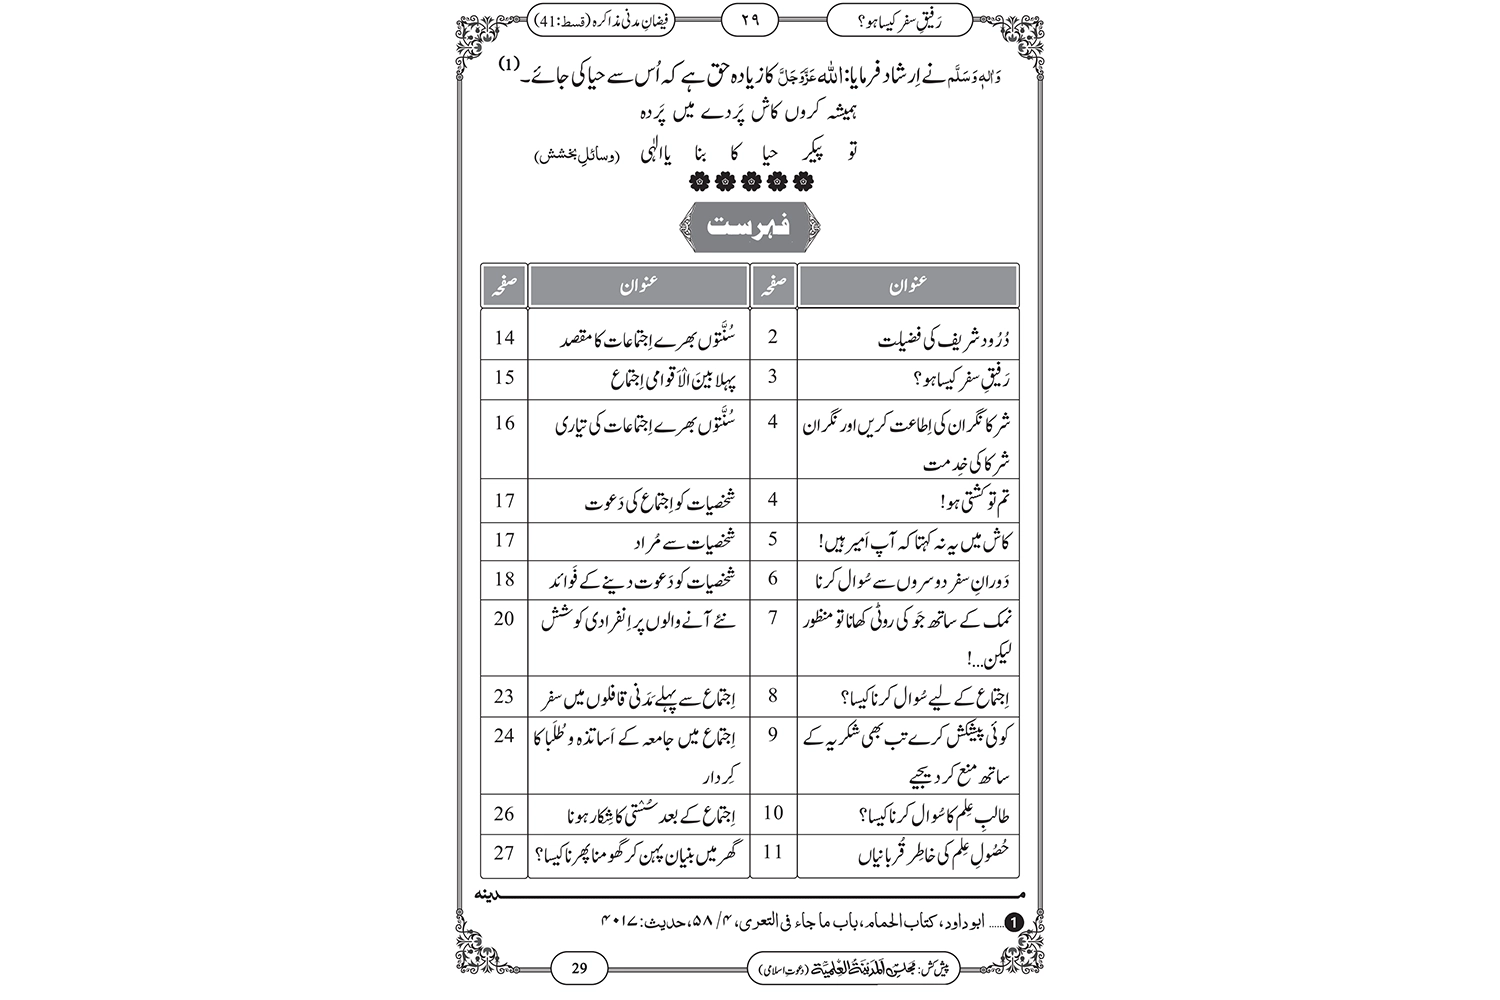 رَفیقِ سفر کیسا ہو؟ ۲۹ فیضانِ مدنی مذاکرہ (قسط:41)
وَاٰلِہٖ وَسَلَّم نے اِرشاد فرمایا: اللہ عَزَّوَجَلَّ کا زیادہ حق ہے کہ اُس سے حیا کی جائے۔ (1)
ہمیشہ کروں کاش پَردے میں پَردہ
تو پیکر حیا کا بنا یاالٰہی (وسائلِ بخشش)
فہرست
عنوان صفحہ عنوان صفحہ
دُرُود شریف کی فضیلت 2 سُنَّتوں بھرے اِجتماعات کا مقصد 14
رَفیقِ سفر کیسا ہو؟ 3 پہلا بینَ الْاَقوامی اِجتماع 15
شرکا نگران کی اِطاعت کریں اور نگران 4 سُنَّتوں بھرے اِجتماعات کی تیاری 16
شرکا کی خِدمت
تم تو کشتی ہو! 4 شخصیات کو اِجتماع کی دَعوت 17
کاش میں یہ نہ کہتا کہ آپ اَمیر ہیں! 5 شخصیات سے مُراد 17
دَورانِ سفر دوسروں سے سُوال کرنا 6 شخصیات کو دَعوت دینے کے فَوائد 18
نمک کے ساتھ جَو کی روٹی کھانا تو منظور 7 نئے آنے والوں پر اِنفرادی کوشش 20
لیکن...!
اِجتماع کے لیے سُوال کرنا کیسا؟ 8 اِجتماع سے پہلے مَدَنی قافلوں میں سفر 23
کوئی پیشکش کرے تب بھی شکریہ کے 9 اِجتماع میں جامعہ کے اَساتذہ و طُلَبا کا 24
ساتھ منع کر دیجیے کِردار
طالبِ عِلم کا سُوال کرنا کیسا؟ 10 اِجتماع کے بعد سُستی کا شِکار ہونا 26
حُصُولِ عِلم کی خاطِر قُربانیاں 11 گھر میں بنیان پہن کر گھومنا پھرنا کیسا؟ 27
مدینہ
1 ..... ابو داود، کتاب الحمام، باب ما جاء فی التعری، ۴/ ۵۸، حدیث: ۴۰۱۷
پیش کش: مجلس المدینۃ العلمیۃ (دعوتِ اسلامی) 29